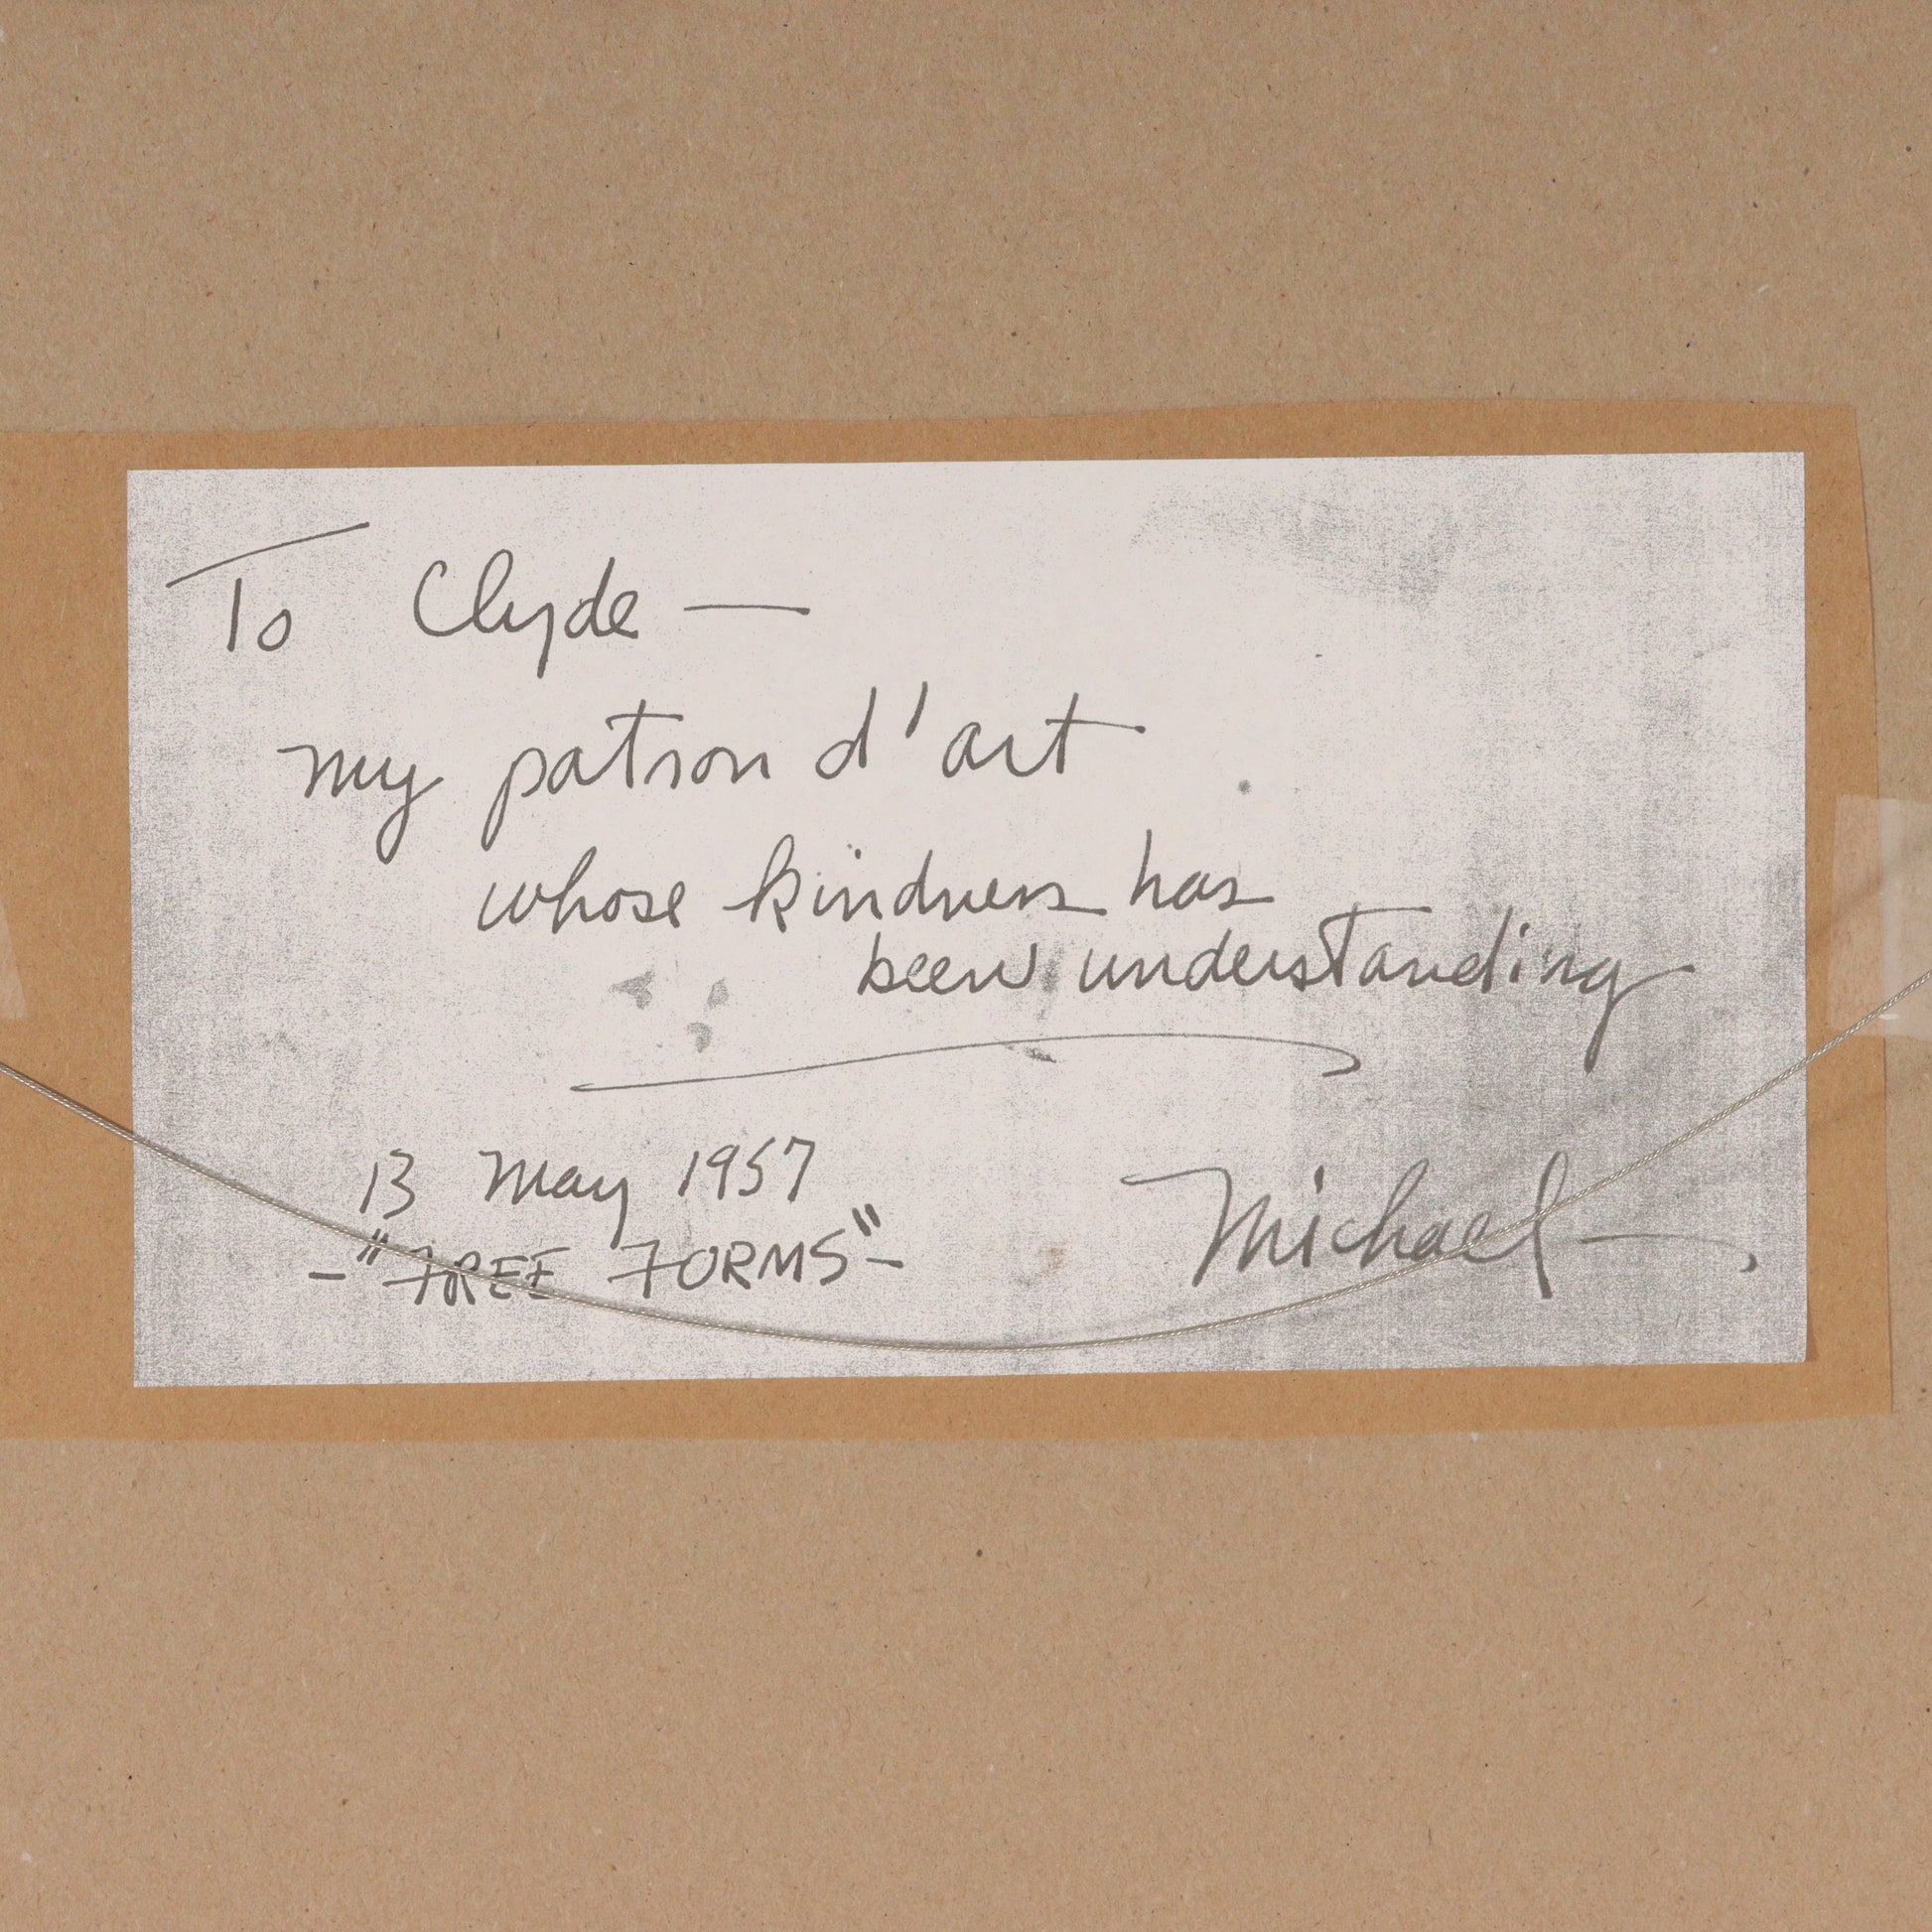 To Clyde —
my patron d'art
whose kindness has
been understanding
13 May 1957
- "FREE FORMS" -
Michael —